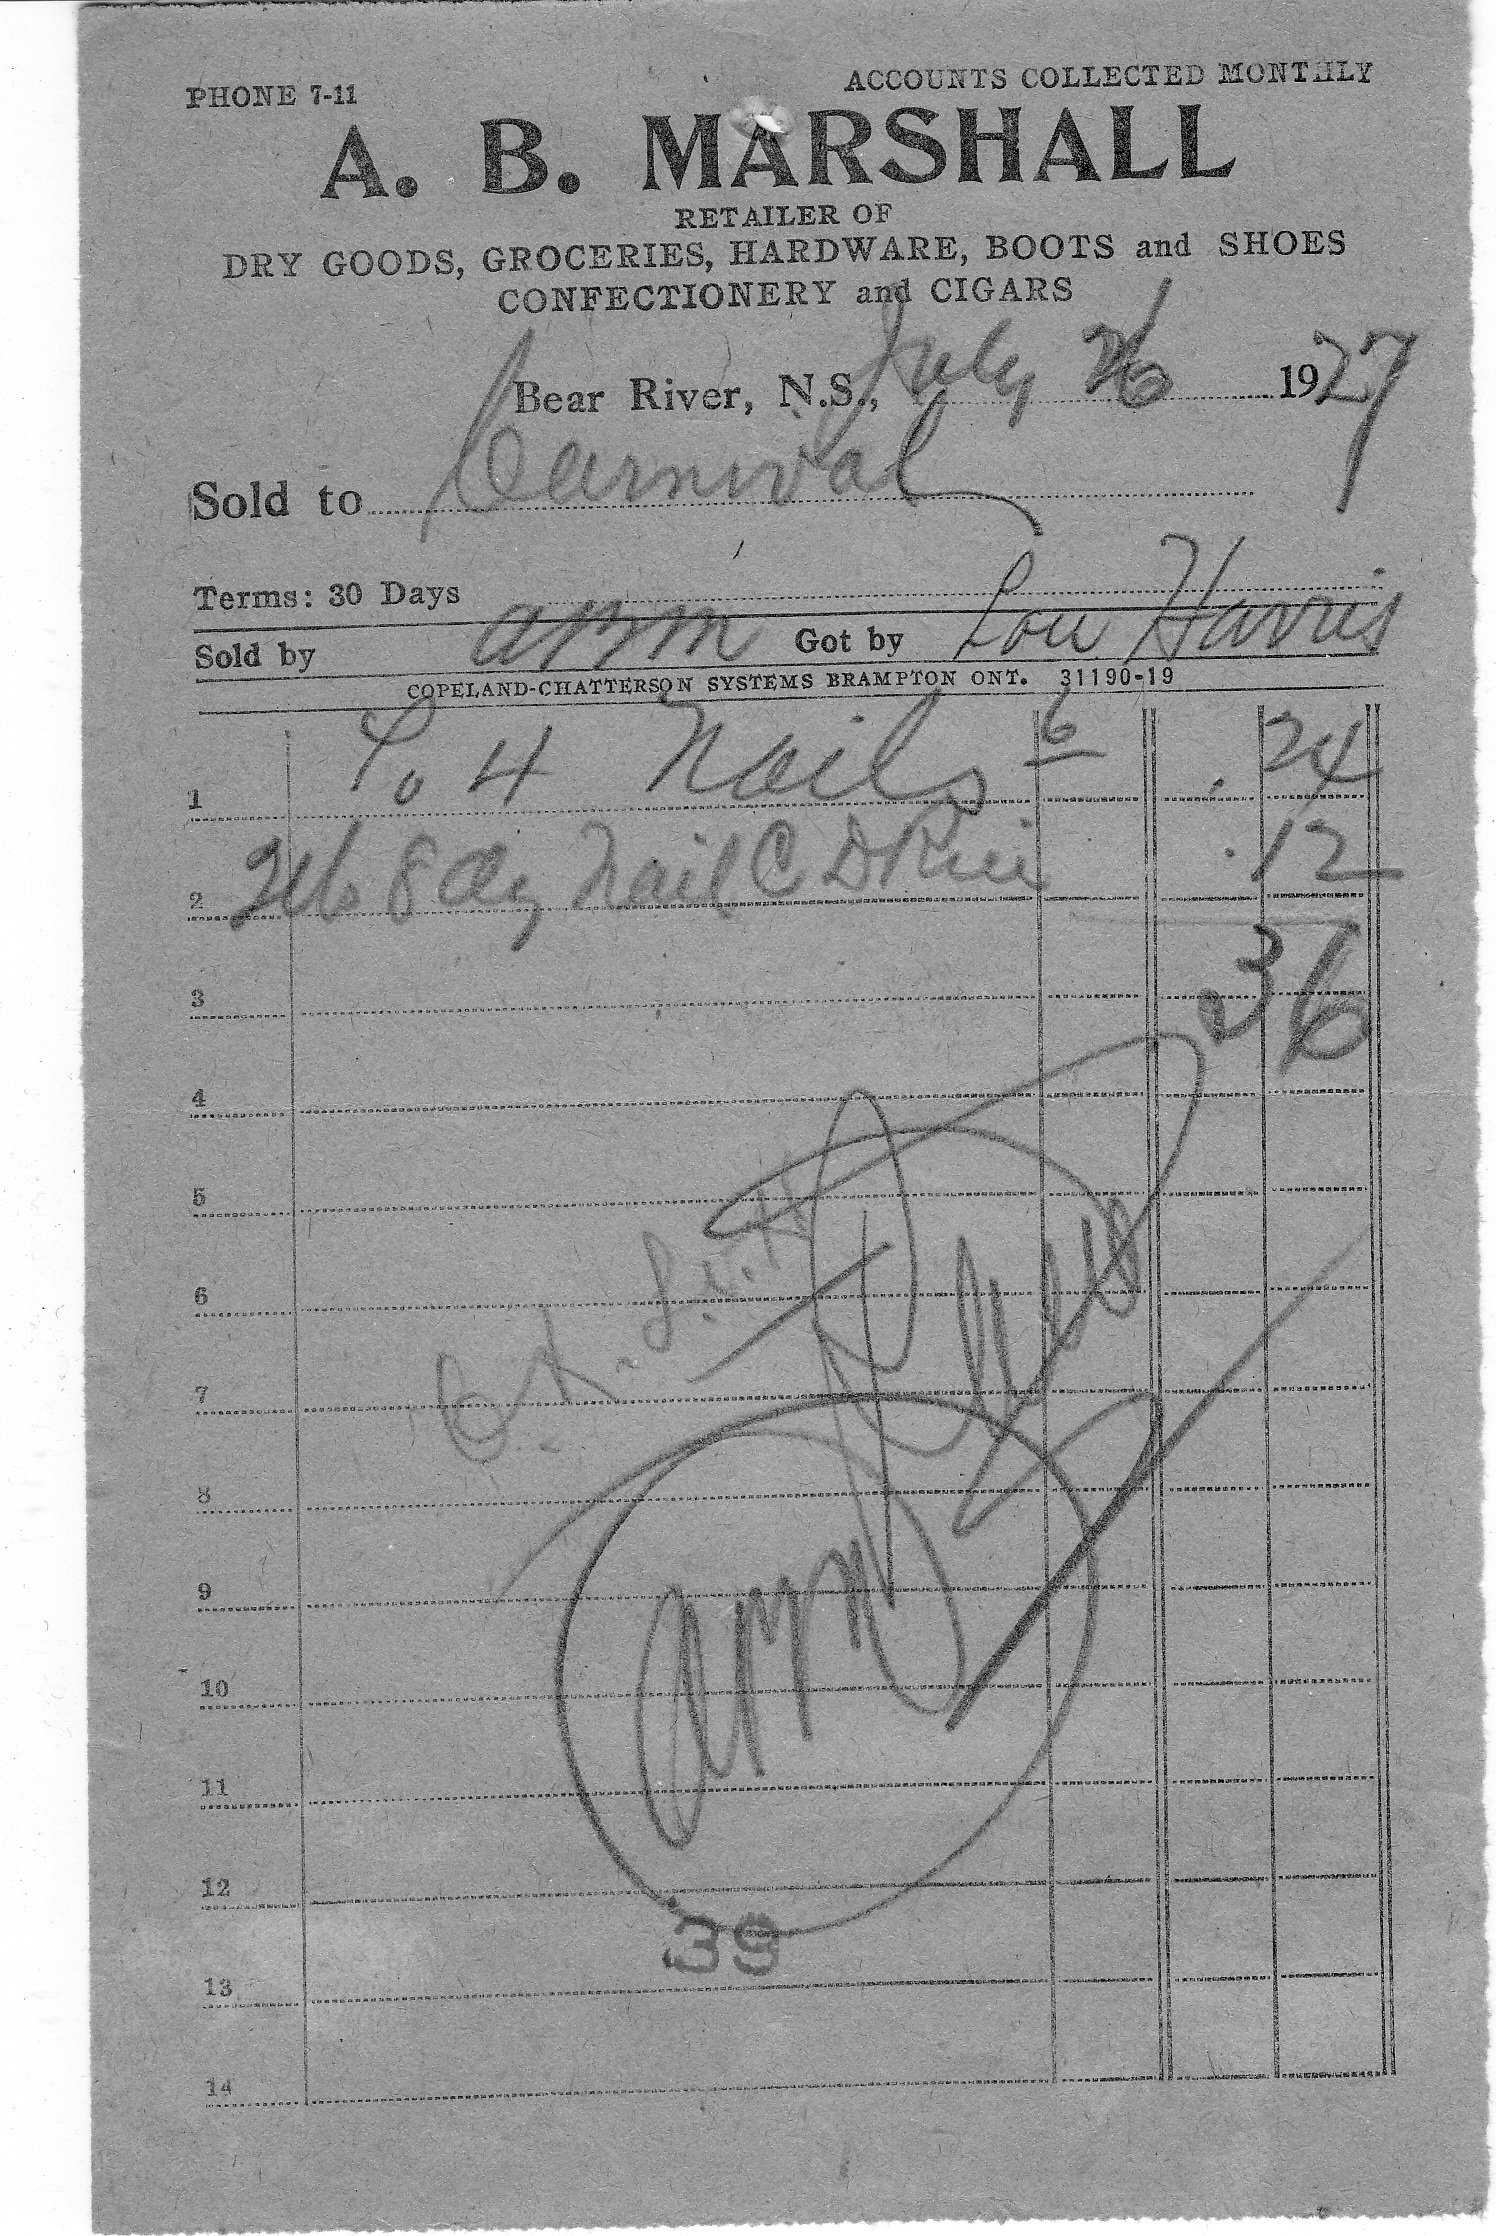 PHONE 7-11
ACCOUNTS COLLECTED MONTHLY
A. B. MARSHALL
RETAILER OF
DRY GOODS, GROCERIES, HARDWARE, BOOTS and SHOES
CONFECTIONERY and CIGARS
Bear River, N.S., July 26 1927
Sold to Carnival
Terms: 30 Days
Sold by ABM Got by Lou Harris
COPELAND-CHATTERSON SYSTEMS BRAMPTON ONT. 31190-19
1 To 4 Nails 6 .24
2 2 lb 8 dy Nail C D Rice .12
3 36
4
5
6
7 O.K.
8
9
10
11
12
39
13
14